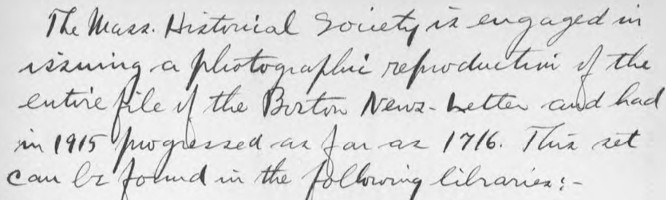 The Mass. Historical Society is engaged in
issuing a photographic reproduction of the
entire file of the Boston News-Letter and had
in 1915 progressed as far as 1716. This set
can be found in the following libraries:-